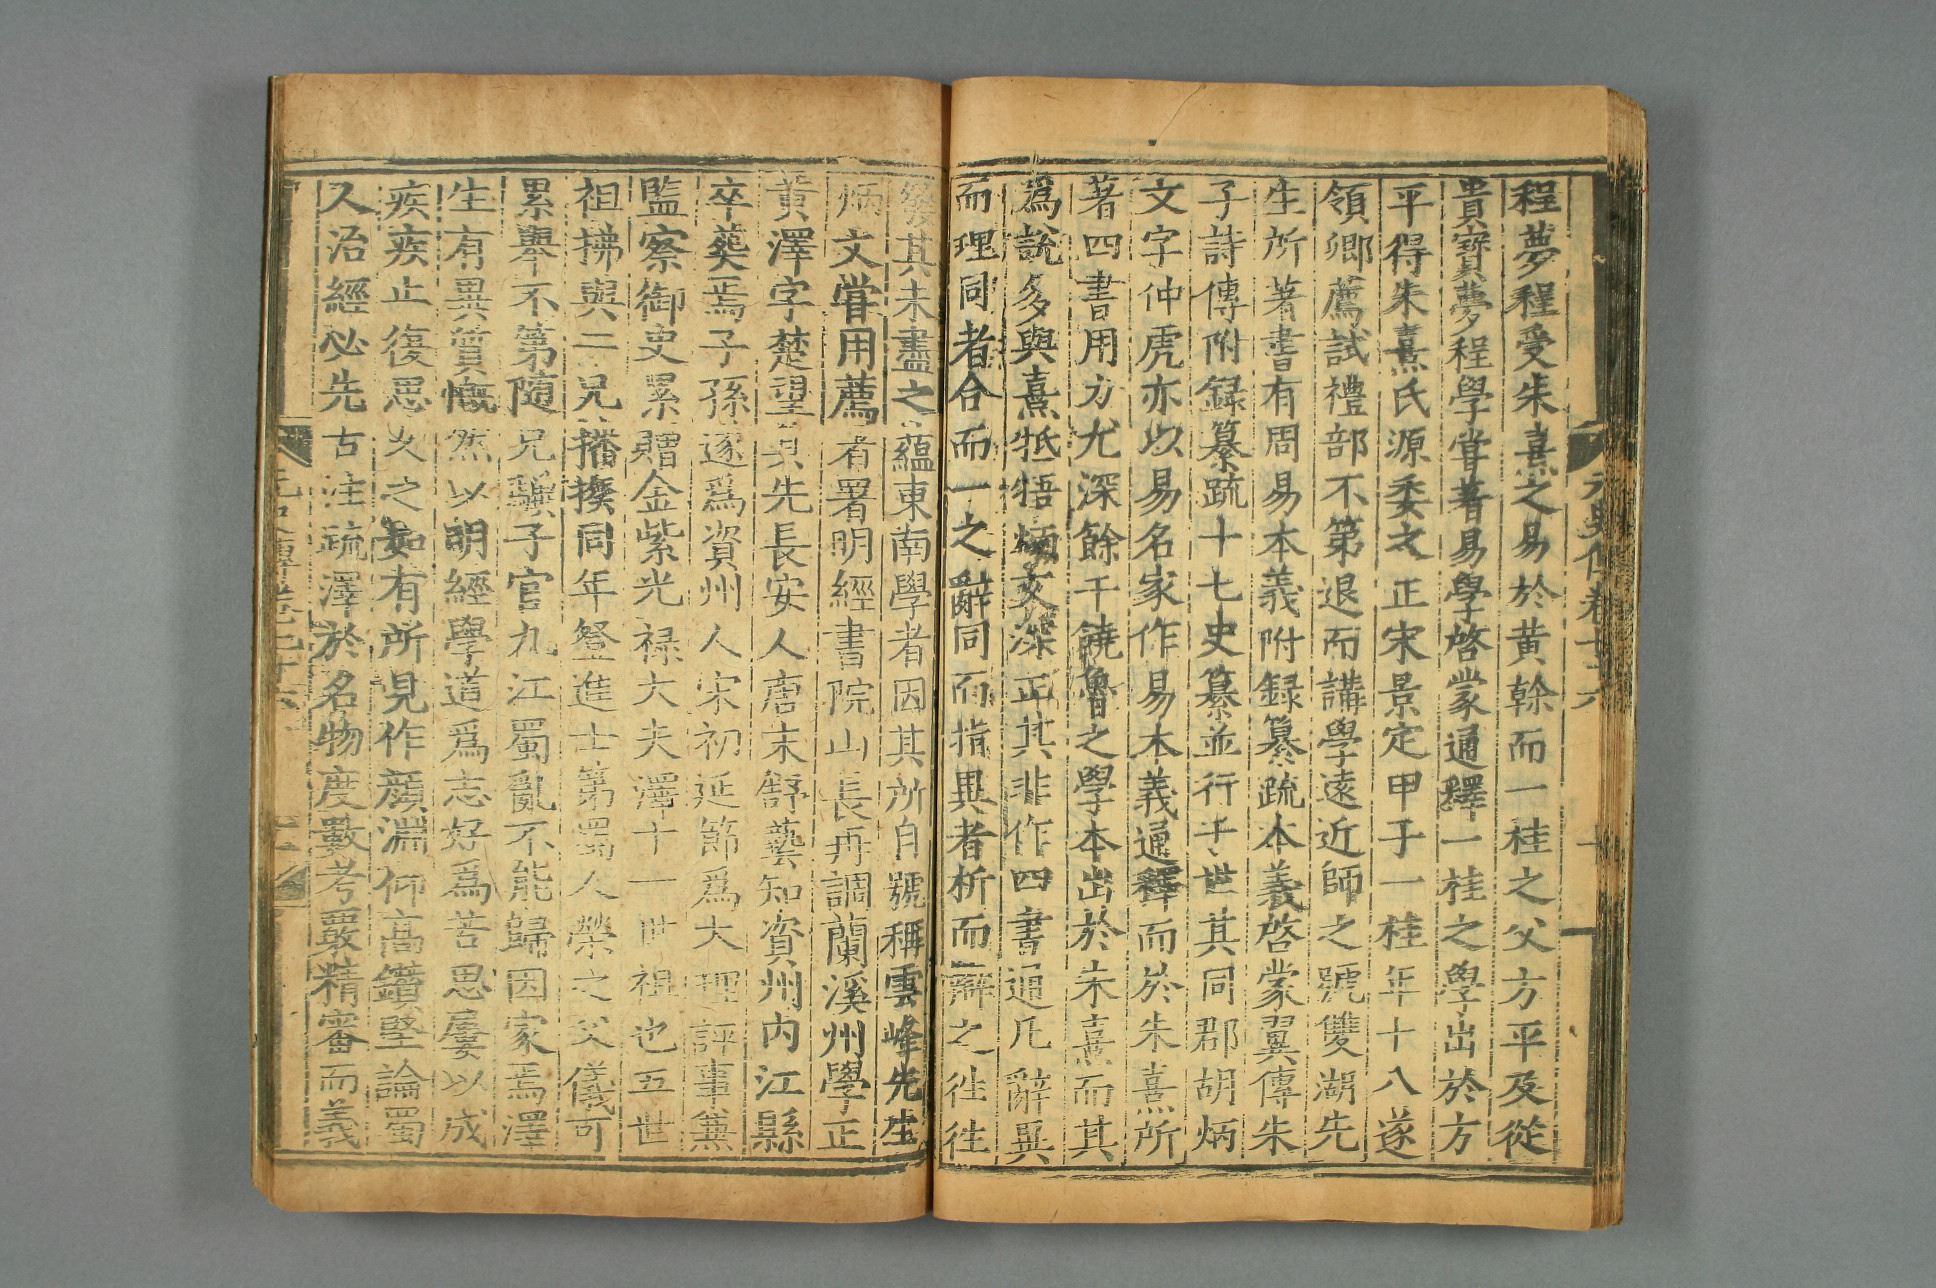 元史傳卷七十六
程夢程受朱熹之易於黄榦而一桂之父方平及從
貴寳夢程學嘗著易學啓蒙通釋一桂之學出於方
平得朱熹氏源委之正宋景定甲子一桂年十八遂
領鄉薦試禮部不第退而講學遠近師之號雙湖先
生所著書有周易本義附録纂疏本義啓蒙翼傳朱
子詩傳附録纂疏十七史纂並行于世其同郡胡炳
文字仲虎亦以易名家作易本義通釋而於朱熹所
著四書用力尤深餘干饒魯之學本出於朱熹而其
爲說多與熹牴牾炳文深正其非作四書通凡辭異
而理同者合而一之辭同而指異者析而辯之徃徃
發其未盡之蘊東南學者因其所自號稱雲峰先生
炳文嘗用薦者署明經書院山長再調蘭溪州學正
黄澤字楚望其先長安人唐末舒藝知資州内江縣
卒葬焉子孫遂爲資州人宋初延節爲大理評事兼
監察御史累贈金紫光禄大夫澤十一世祖也五世
祖拂與二兄播揆同年登進士第蜀人榮之父儀可
累舉不第隨兄驥子官九江蜀亂不能歸因家焉澤
生有異質慨然以明經學道爲志好爲苦思屢以成
疾疾止復思久之如有所見作顔淵仰高鑽堅論蜀
人治經必先古注疏澤於名物度數考覈精審而義
元史傳卷七十六